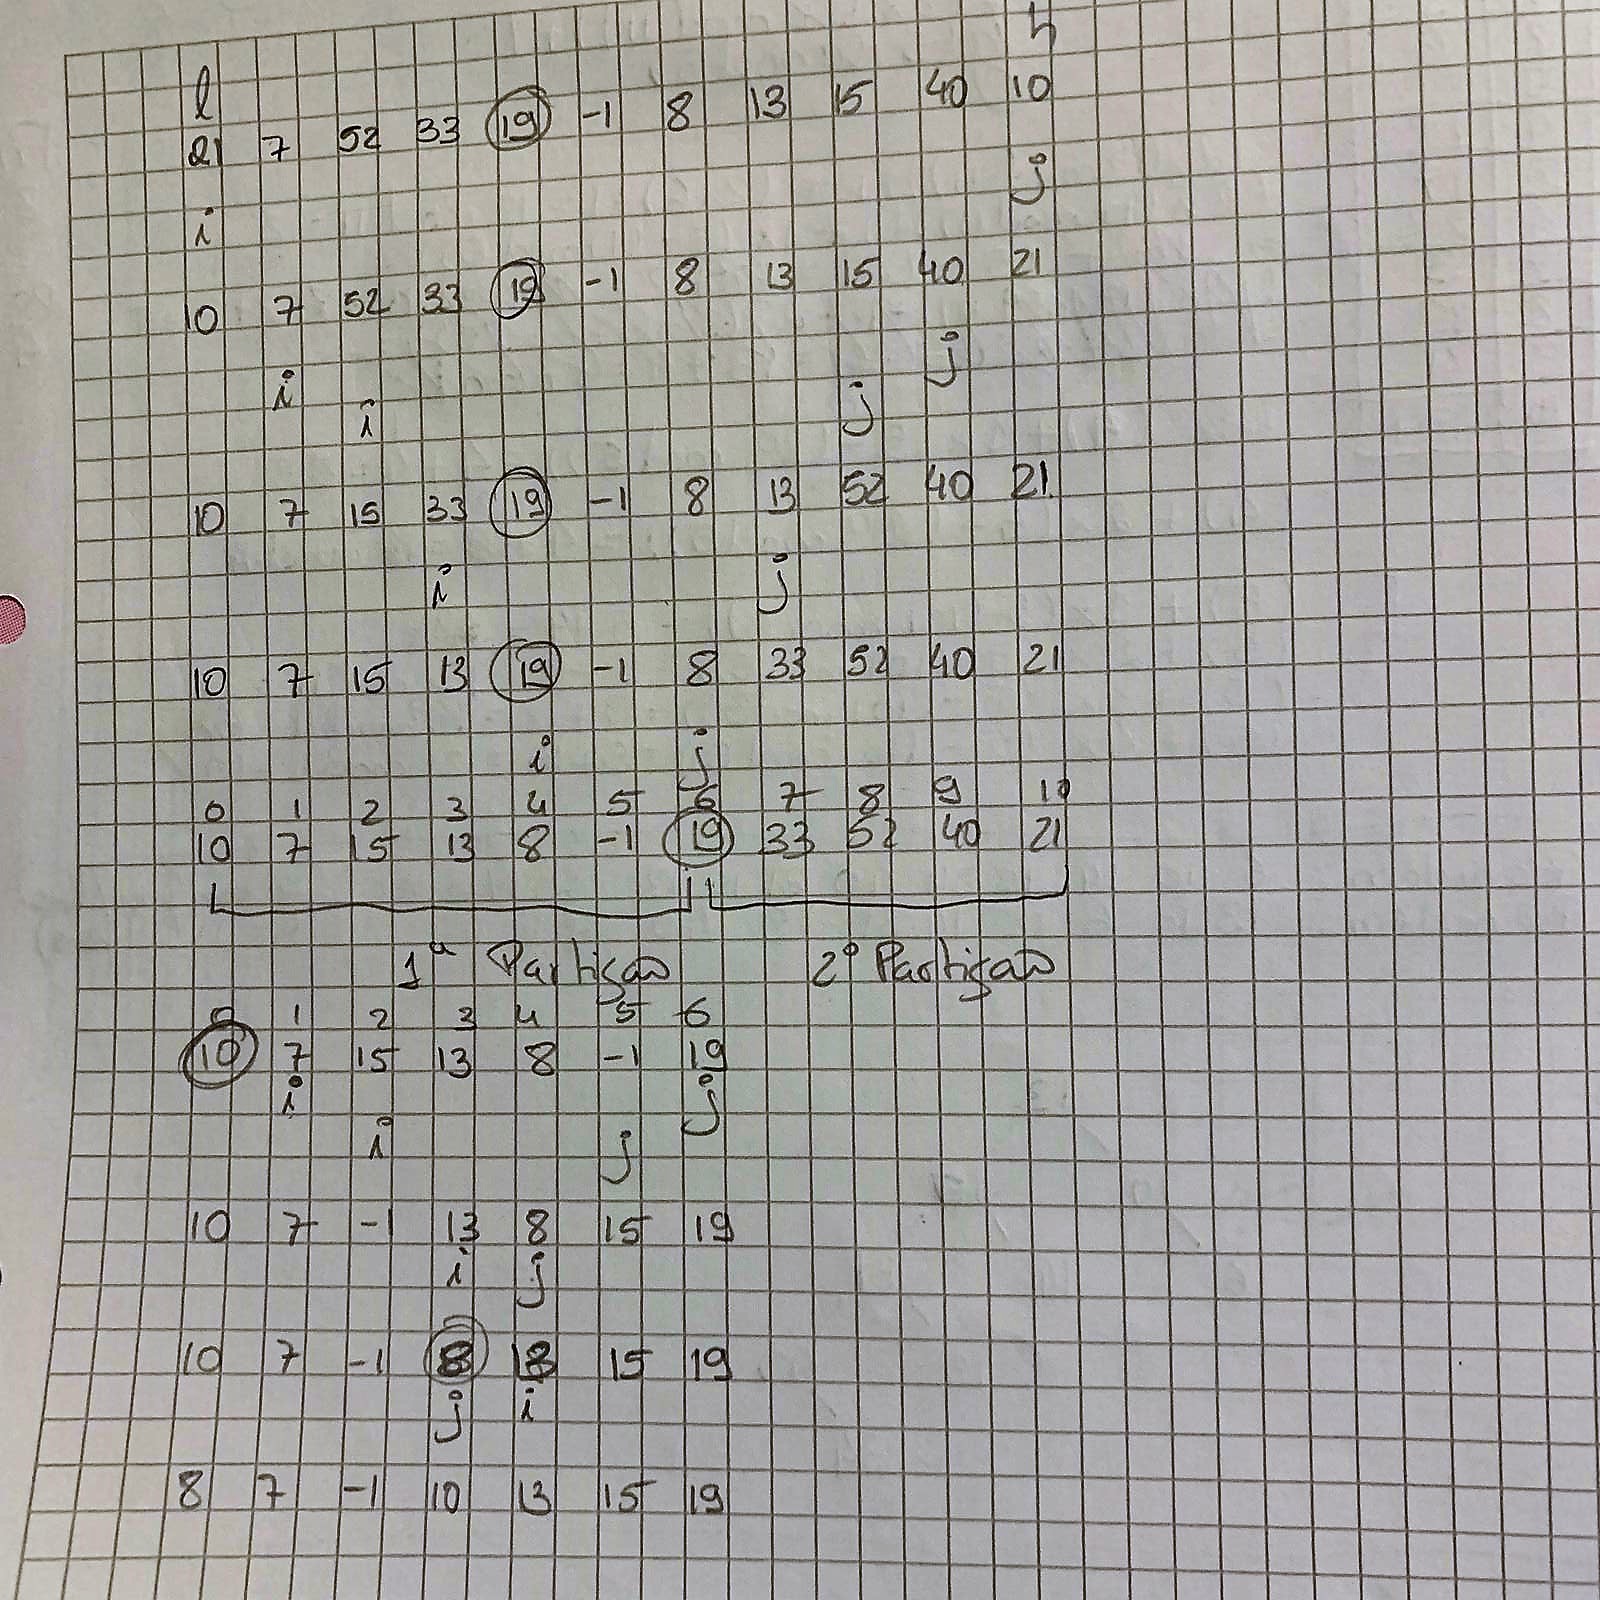 l h
21 7 52 33 19 -1 8 13 15 40 10
i j
10 7 52 33 19 -1 8 13 15 40 21
i j
i j
10 7 15 33 19 -1 8 13 52 40 21
i j
10 7 15 13 19 -1 8 33 52 40 21
i j
0 1 2 3 4 5 6 7 8 9 10
10 7 15 13 8 -1 19 33 52 40 21
1ª Partição 2º Partição
0 1 2 3 4 5 6
10 7 15 13 8 -1 19
i j
i j
10 7 -1 13 8 15 19
i j
10 7 -1 8 13 15 19
j i
8 7 -1 10 13 15 19